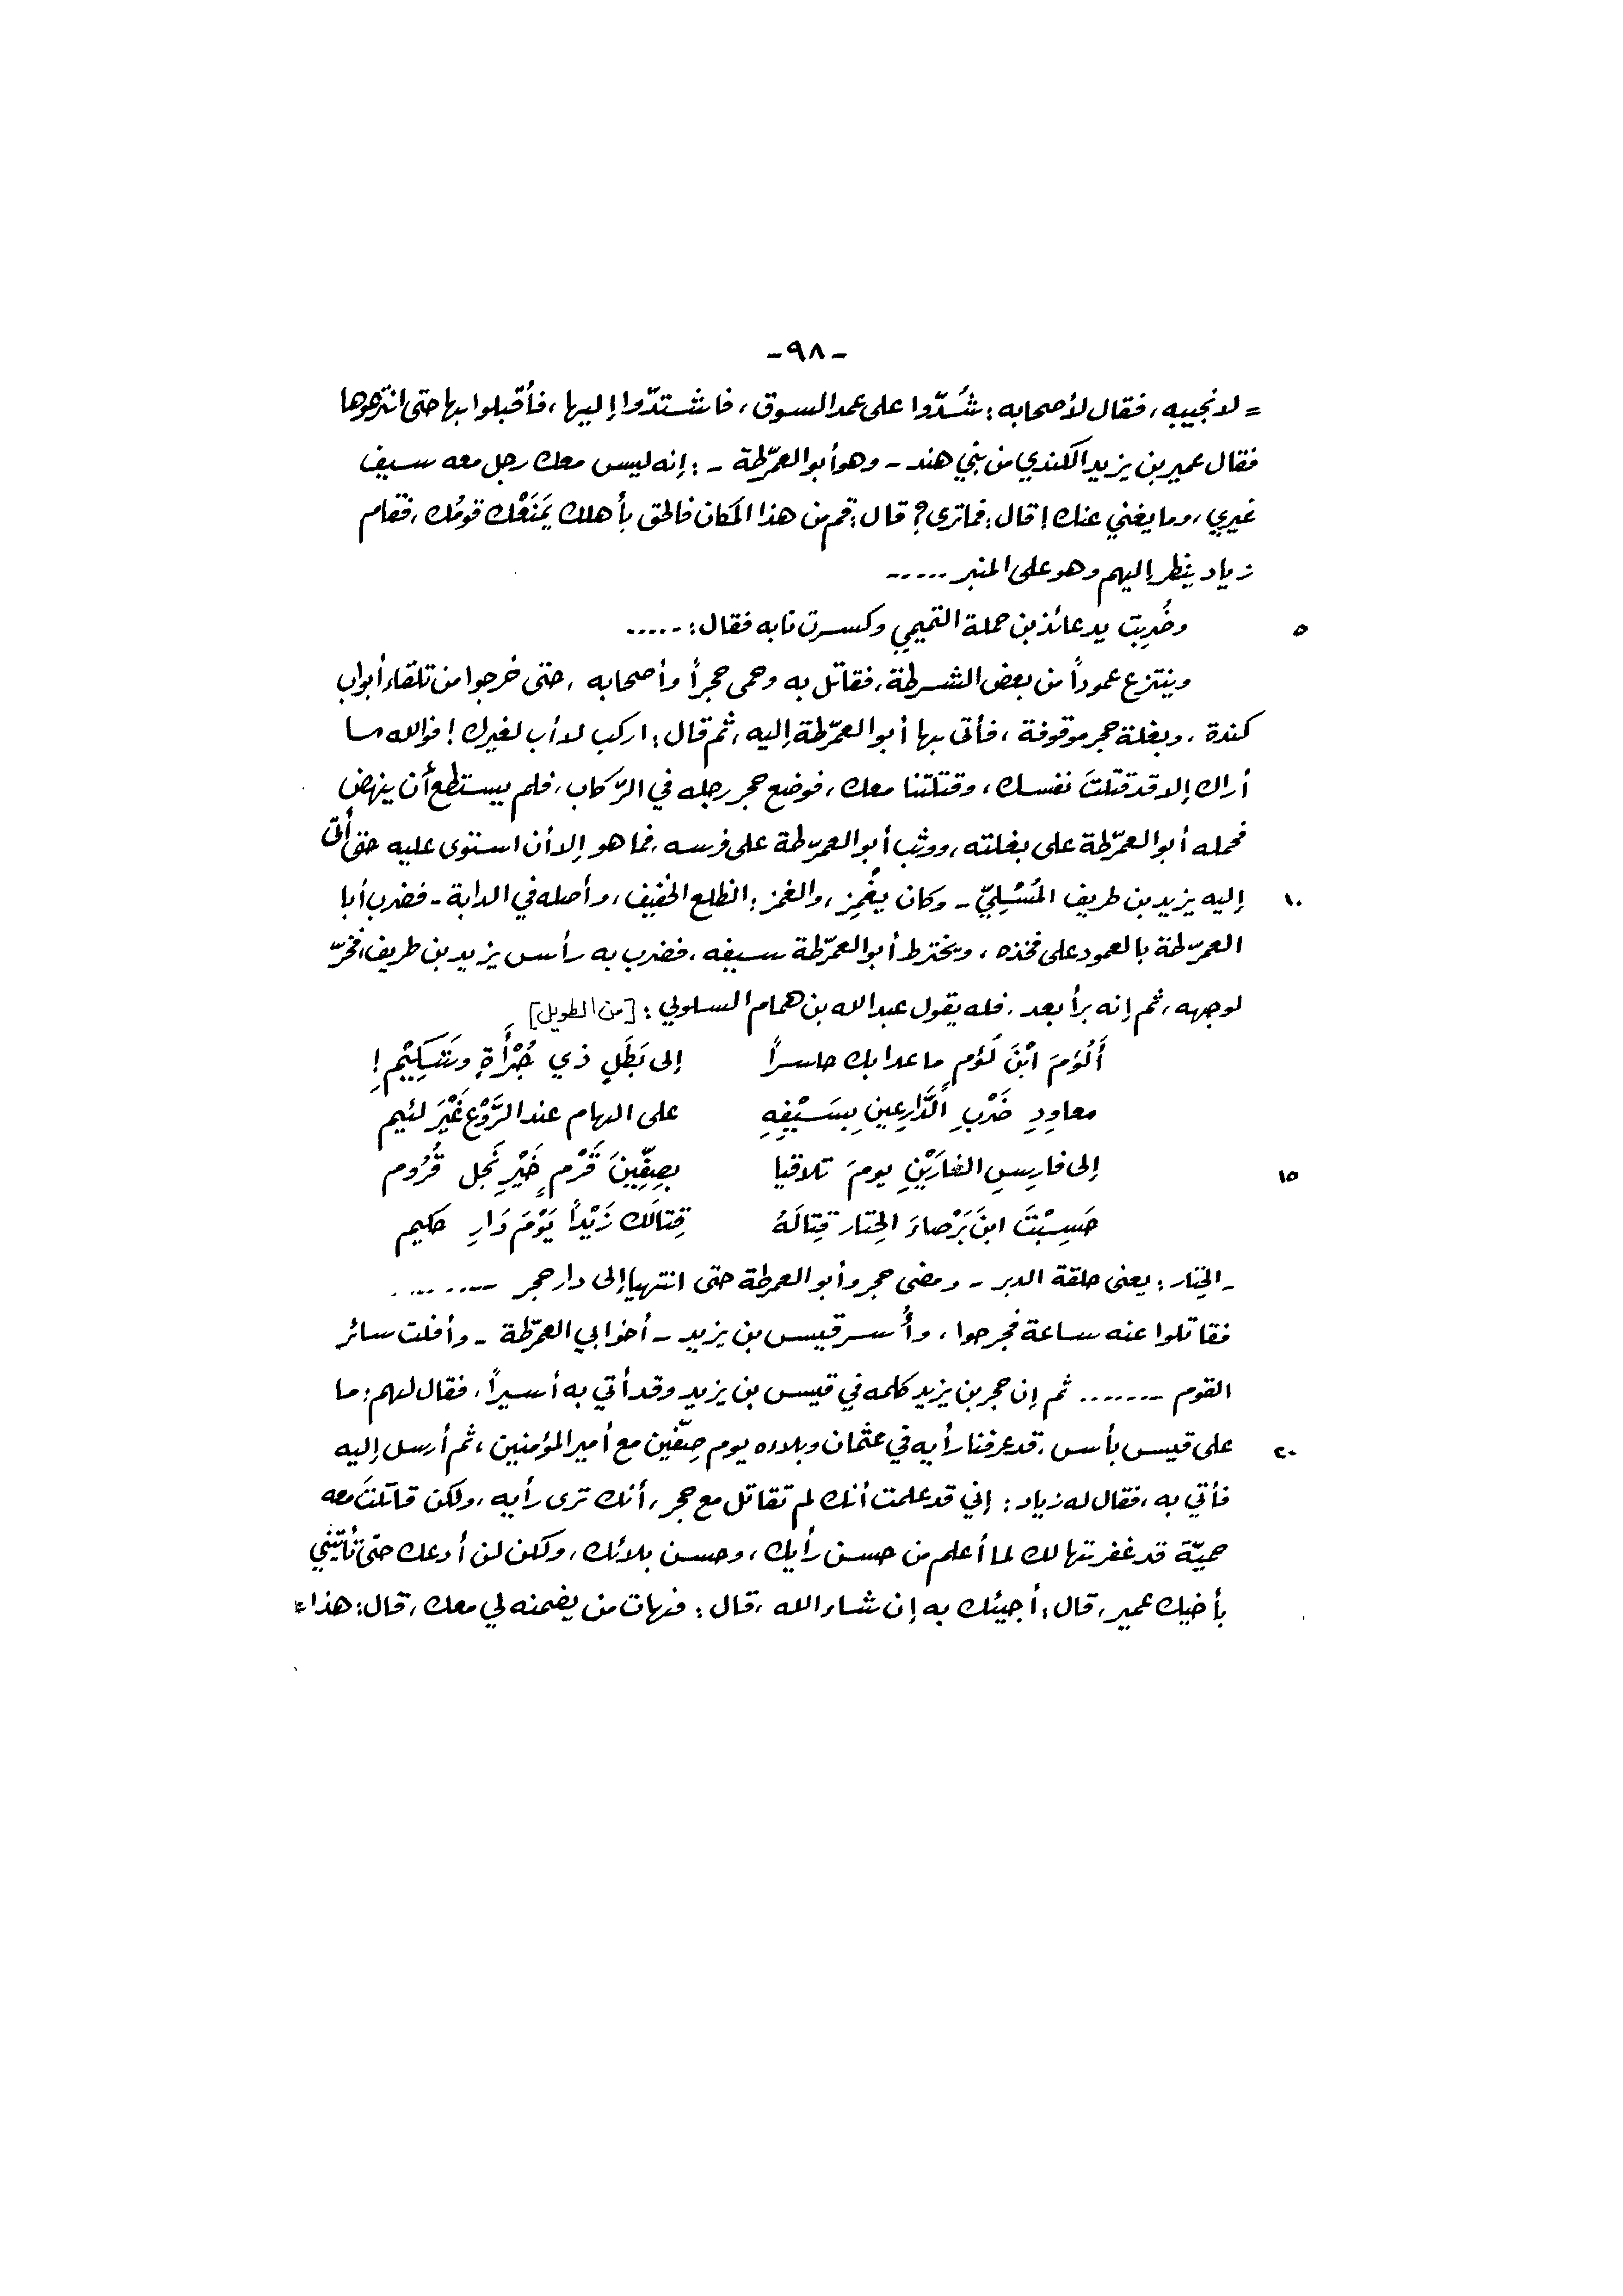 -٩٨-
= لا نجيبه، فقال لأصحابه: شُدّوا على عمد السوق، فاشتدّوا إليها، فأقبلوا بها حتى انتزعوها
فقال عمير بن يزيد الكندي من بني هند - وهو أبو العمرّطة -: إنه ليس معك رجل معه سيف
غيري، وما يغني عنك! قال: فما ترى؟ قال: قم من هذا المكان فالحق بأهلك يَمنَعْك قومُك، فقام
زياد ينظر إليهم وهو على المنبر .....
٥ وضُرِبت يد عائذ بن حملة التميمي وكسرت نابه فقال: .....
وينتزع عموداً من بعض الشرطة، فقاتل به وحمى حجراً وأصحابه، حتى خرجوا من تلقاء أبواب
كندة، وبغلة حجر موقوفة، فأتى بها أبو العمرّطة إليه، ثم قال: اركب لا أب لغيرك! فوالله ما
أراك إلا قد قتلتَ نفسك، وقتلتنا معك، فوضع حجر رجله في الرّكاب، فلم يستطع أن ينهض
فحمله أبو العمرّطة على بغلته، ووثب أبو العمرّطة على فرسه، فما هو إلا أن استوى عليه حتى أتى
١٠ إليه يزيد بن طريف المُسْلِيّ - وكان يغْمِز، والغمز: الظلع الخفيف، وأصله في الدابة - فضرب أبا
العمرّطة بالعمود على فخذه، ويخترط أبو العمرّطة سيفه، فضرب به رأس يزيد بن طريف، فخرّ
لوجهه، ثم إنه برأ بعد، فله يقول عبد الله بن همام السلولي: [من الطويل]
أَلُؤمَ ابْنَ لُؤم ما عدا بك حاسراً إلى بَطَلٍ ذي جُرْأَةٍ وشَكِيْمِ!
معاوِدِ ضَرْبِ الدَّارِعينِ بِسَيْفِهِ على الهام عند الرَّوْعِ غَيْرَ لئيم
١٥ إلى فارِسِ الغارَيْنِ يومَ تلاقيا بِصِفِّينَ قَرْمٍ خَيْرِ نَجل قُرُوم
حَسِبْتَ ابنَ بَرْصاءَ الحِتار قِتالَهُ قِتالَك زَيْداً يَوْمَ دَارِ حكيم
- الحِتار: يعنى حلقة الدبر - ومضى حجر وأبو العمرطة حتى انتهيا إلى دار حجر ........
فقاتلوا عنه ساعة فجرحوا، وأُسر قيس بن يزيد - أخو ابي العمرّطة - وأفلت سائر
القوم ....... ثم إن حجر بن يزيد كلمه في قيس بن يزيد وقد أتي به أسيراً، فقال لهم: ما
٢٠ على قيس بأس، قد عرفنا رأيه في عثمان وبلاءه يوم صِفّين مع أمير المؤمنين، ثم أرسل إليه
فأتي به، فقال له زياد: إني قد علمت أنك لم تقاتل مع حجر، أنك ترى رأيه، ولكن قاتلتَ معه
حميّة قد غفرتها لك لما أعلم من حسن رأيك، وحسن بلائك، ولكن لن أدعك حتّى تأتيني
بأخيك عمير، قال: أجيئك به إن شاء الله، قال: فهات من يضمنه لي معك، قال: هذا =